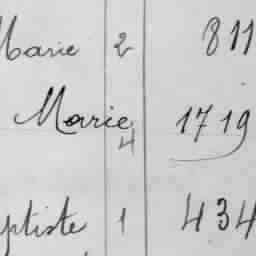 Marie 2 811
Marie 4 1719
ptiste 1 434